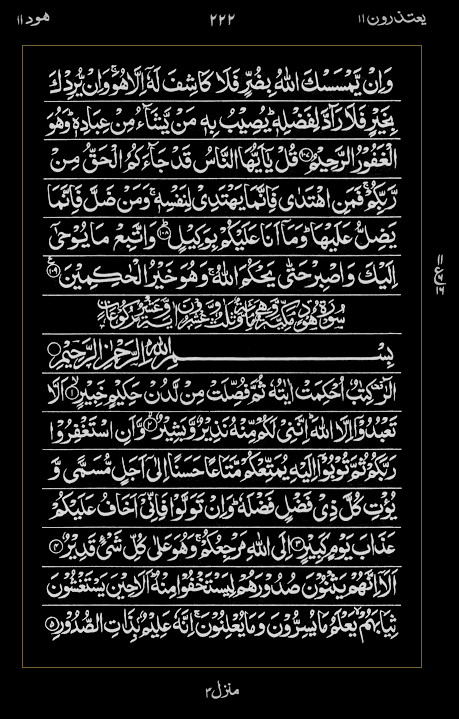 يعتذرون ١١
٢٢٢
هود ١١
وَاِنْ يَّمْسَسْكَ اللّٰهُ بِضُرٍّ فَلَا كَاشِفَ لَهٗۤ اِلَّا هُوَ ۚ وَاِنْ يُّرِدْكَ
بِخَيْرٍ فَلَا رَآدَّ لِفَضْلِهٖ ؕ يُصِيْبُ بِهٖ مَنْ يَّشَآءُ مِنْ عِبَادِهٖ ؕ وَهُوَ
الْغَفُوْرُ الرَّحِيْمُ ﴿۱۰۷﴾ قُلْ يٰۤاَيُّهَا النَّاسُ قَدْ جَآءَكُمُ الْحَقُّ مِنْ
رَّبِّكُمْ ۚ فَمَنِ اهْتَدٰى فَاِنَّمَا يَهْتَدِىْ لِنَفْسِهٖ ۚ وَمَنْ ضَلَّ فَاِنَّمَا
يَضِلُّ عَلَيْهَا ؕ وَمَاۤ اَنَا عَلَيْكُمْ بِوَكِيْلٍ ﴿۱۰۸﴾ وَاتَّبِعْ مَا يُوْحٰۤى
اِلَيْكَ وَاصْبِرْ حَتّٰى يَحْكُمَ اللّٰهُ ۚ وَهُوَ خَيْرُ الْحٰكِمِيْنَ ﴿۱۰۹﴾
١١
ع
١٦
سُوْرَةُ هُوْدٍ مَّكِّيَّةٌ وَّهِىَ مِائَةٌ وَّثَلٰثٌ وَّعِشْرُوْنَ اٰيَةً وَّعَشْرُ رُكُوْعَاتٍ
بِسْمِ اللّٰهِ الرَّحْمٰنِ الرَّحِيْمِ
الٓرٰ ۫ كِتٰبٌ اُحْكِمَتْ اٰيٰتُهٗ ثُمَّ فُصِّلَتْ مِنْ لَّدُنْ حَكِيْمٍ خَبِيْرٍ ﴿۱﴾ اَلَّا
تَعْبُدُوْۤا اِلَّا اللّٰهَ ؕ اِنَّنِىْ لَكُمْ مِّنْهُ نَذِيْرٌ وَّبَشِيْرٌ ﴿۲﴾ وَّاَنِ اسْتَغْفِرُوْا
رَبَّكُمْ ثُمَّ تُوْبُوْۤا اِلَيْهِ يُمَتِّعْكُمْ مَّتَاعًا حَسَنًا اِلٰۤى اَجَلٍ مُّسَمًّى وَّ
يُؤْتِ كُلَّ ذِىْ فَضْلٍ فَضْلَهٗ ؕ وَاِنْ تَوَلَّوْا فَاِنِّىْۤ اَخَافُ عَلَيْكُمْ
عَذَابَ يَوْمٍ كَبِيْرٍ ﴿۳﴾ اِلَى اللّٰهِ مَرْجِعُكُمْ ۚ وَهُوَ عَلٰى كُلِّ شَىْءٍ قَدِيْرٌ ﴿۴﴾
اَلَاۤ اِنَّهُمْ يَثْنُوْنَ صُدُوْرَهُمْ لِيَسْتَخْفُوْا مِنْهُ ؕ اَلَا حِيْنَ يَسْتَغْشُوْنَ
ثِيَابَهُمْ ۙ يَعْلَمُ مَا يُسِرُّوْنَ وَمَا يُعْلِنُوْنَ ۚ اِنَّهٗ عَلِيْمٌۢ بِذَاتِ الصُّدُوْرِ ﴿۵﴾
منزل ٣